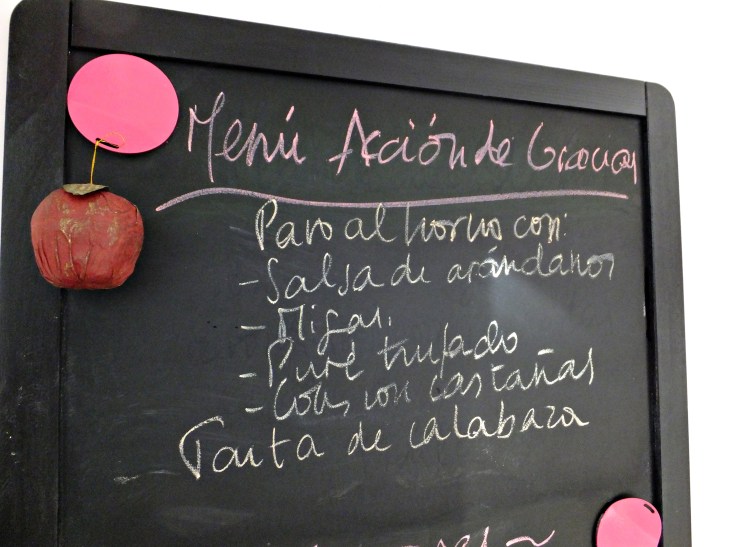 Menú Acción de Gracias
Pavo al horno con:
- Salsa de arándanos
- Migas.
- Puré trufado
- Coles con castañas
Tarta de calabaza